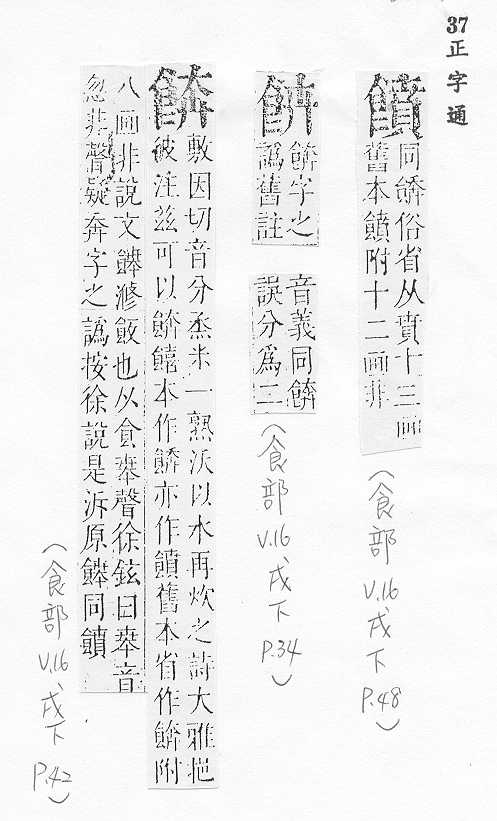 37正字通
饙
同餴俗省从賁十三畫
舊本饙附十二畫非
(食部 V.16 戌下 P.48)
餴字之
譌舊註
音義同餴
誤分為二
(食部 V.16、戌下 P.34)
餴
敷因切音分烝米一熟沃以水再炊之詩大雅挹
彼注茲可以餴饎本作餴亦作饙舊本省作餴附
八畫非說文䭢滫飯也从食𠦪聲徐鉉曰𠦪音
忽非聲疑奔字之譌按徐說是泝原䭢同饙
(食部 V.16、戌下 P.42)